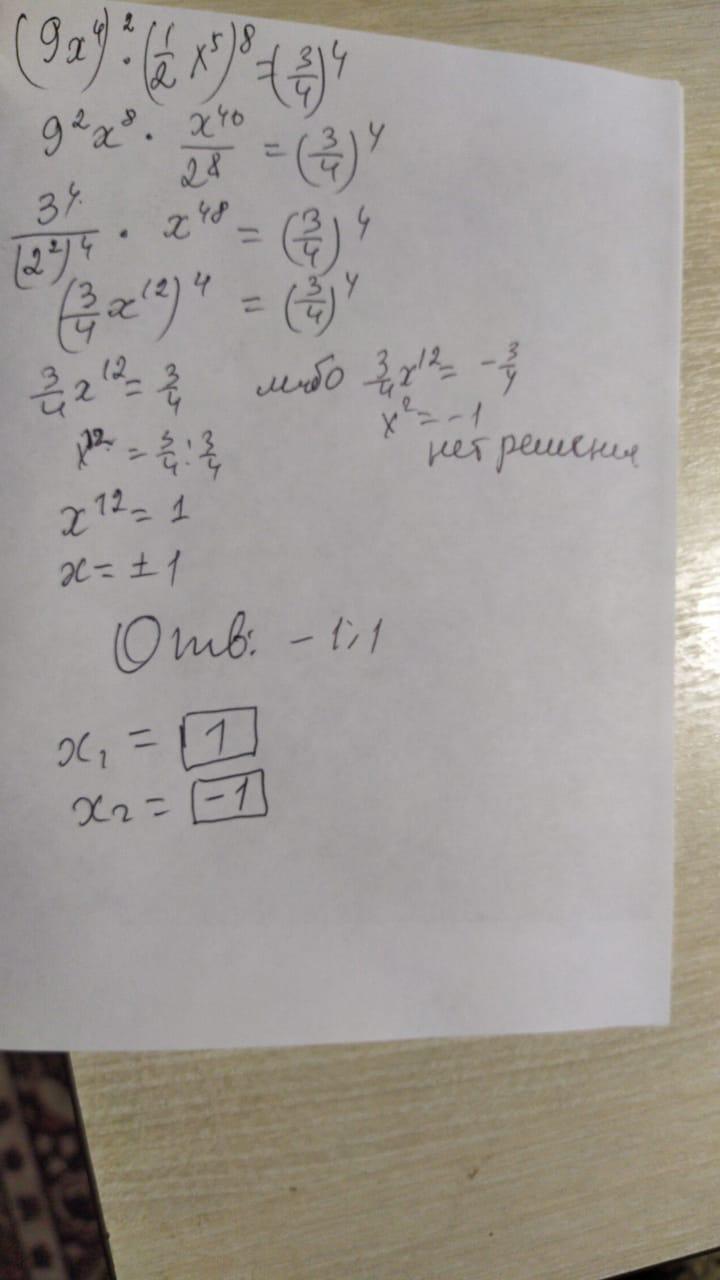 (9x⁴)² · (1/2 x⁵)⁸ = (3/4)⁴
9² x⁸ · x⁴⁰/2⁸ = (3/4)⁴
3⁴/(2²)⁴ · x⁴⁸ = (3/4)⁴
(3/4 x¹²)⁴ = (3/4)⁴
3/4 x¹² = 3/4 либо 3/4 x¹² = - 3/4
x² = -1
нет решения
x¹² = 3/4 : 3/4
x¹² = 1
x = ± 1
Отв: - 1; 1
x₁ = 1
x₂ = -1